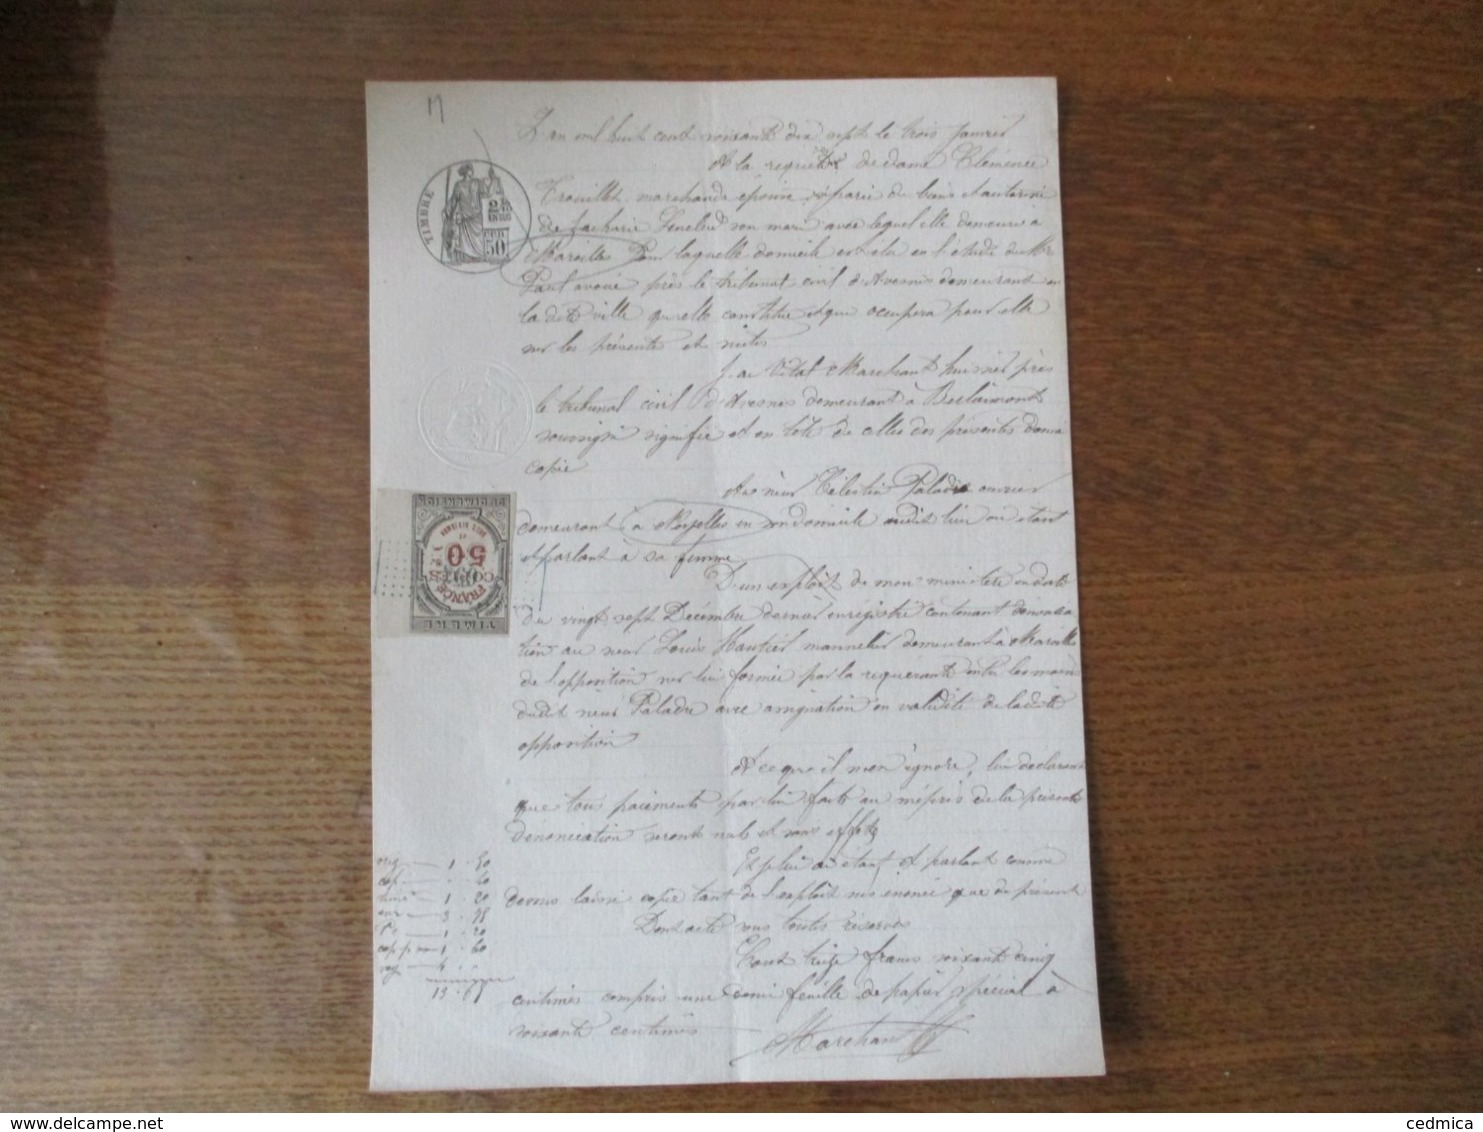 17
L'an mil huit cent soixante dix sept le trois Janvier
A la requête de dame Clémence
Trouillet marchande épouse séparée de biens et autorisée
de Zacharie Fenelus son mari avec lequel elle demeure à
Maroilles Pour laquelle domicile est élu en l'étude de Me
avoué près le tribunal civil d'Avesnes demeurant en
la dite ville qu'elle constitue et qui occupera pour elle
sur les présentes et suites
J. ai Vital Marchant huissier près
le tribunal civil d'Avesnes demeurant à Berlaimont
soussigné signifié et en tête de celle des présentes donné
copie
Au sieur Célestin Paladre ouvrier
demeurant à Noyelles en son domicile audit lieu où étant
et parlant à sa femme
D'un exploit de mon ministère en date
du vingt sept Décembre dernier enregistré contenant dénoncia
tion au sieur Louis Hautier mannelier demeurant à Maroilles
de l'opposition sur lui formée par la requérante entre les mains
dudit sieur Paladre avec assignation en validité de ladite
opposition
A ce qu'il n'en ignore, lui déclarant
que tous paiements par lui faits au mépris de la présente
dénonciation seront nuls et sans effets
Et je lui ai étant et parlant comme
dessus laissé copie tant de l'exploit susénoncé que du présent
Dont acte sous toutes réserves
Cout treize francs soixante cinq
centimes compris une demi feuille de papier spécial à
soixante centimes
Marchant
TIMBRE
50
TIMBRE
FRANCE
50
orig 1.50
cop
1.20
3.75
1.20
cop 1.60
4
13.65
delcampe.net
cedmica